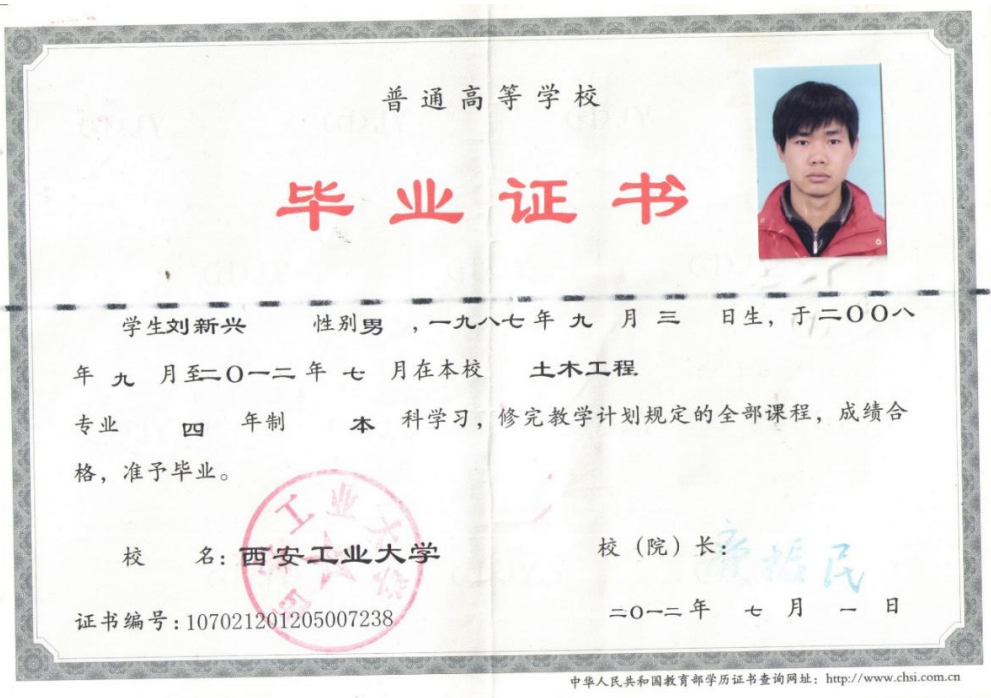 普通高等学校
毕业证书
学生刘新兴 性别男 ,一九八七年 九 月 三 日生，于二〇〇八
年 九 月至二〇一二年 七 月在本校 土木工程
专业 四 年制 本 科学习，修完教学计划规定的全部课程，成绩合
格，准予毕业。
工业大学
校 名：西安工业大学 校（院）长：
证书编号：107021201205007238 二〇一二年 七 月 一 日
中华人民共和国教育部学历证书查询网址：http://www.chsi.com.cn